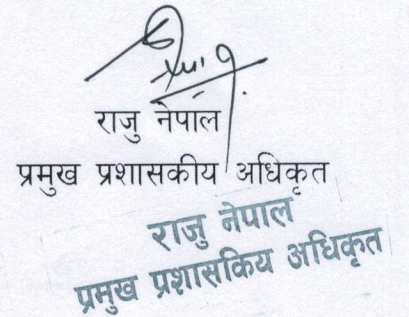 राजु नेपाल
प्रमुख प्रशासकीय अधिकृत
राजु नेपाल
प्रमुख प्रशासकिय अधिकृत